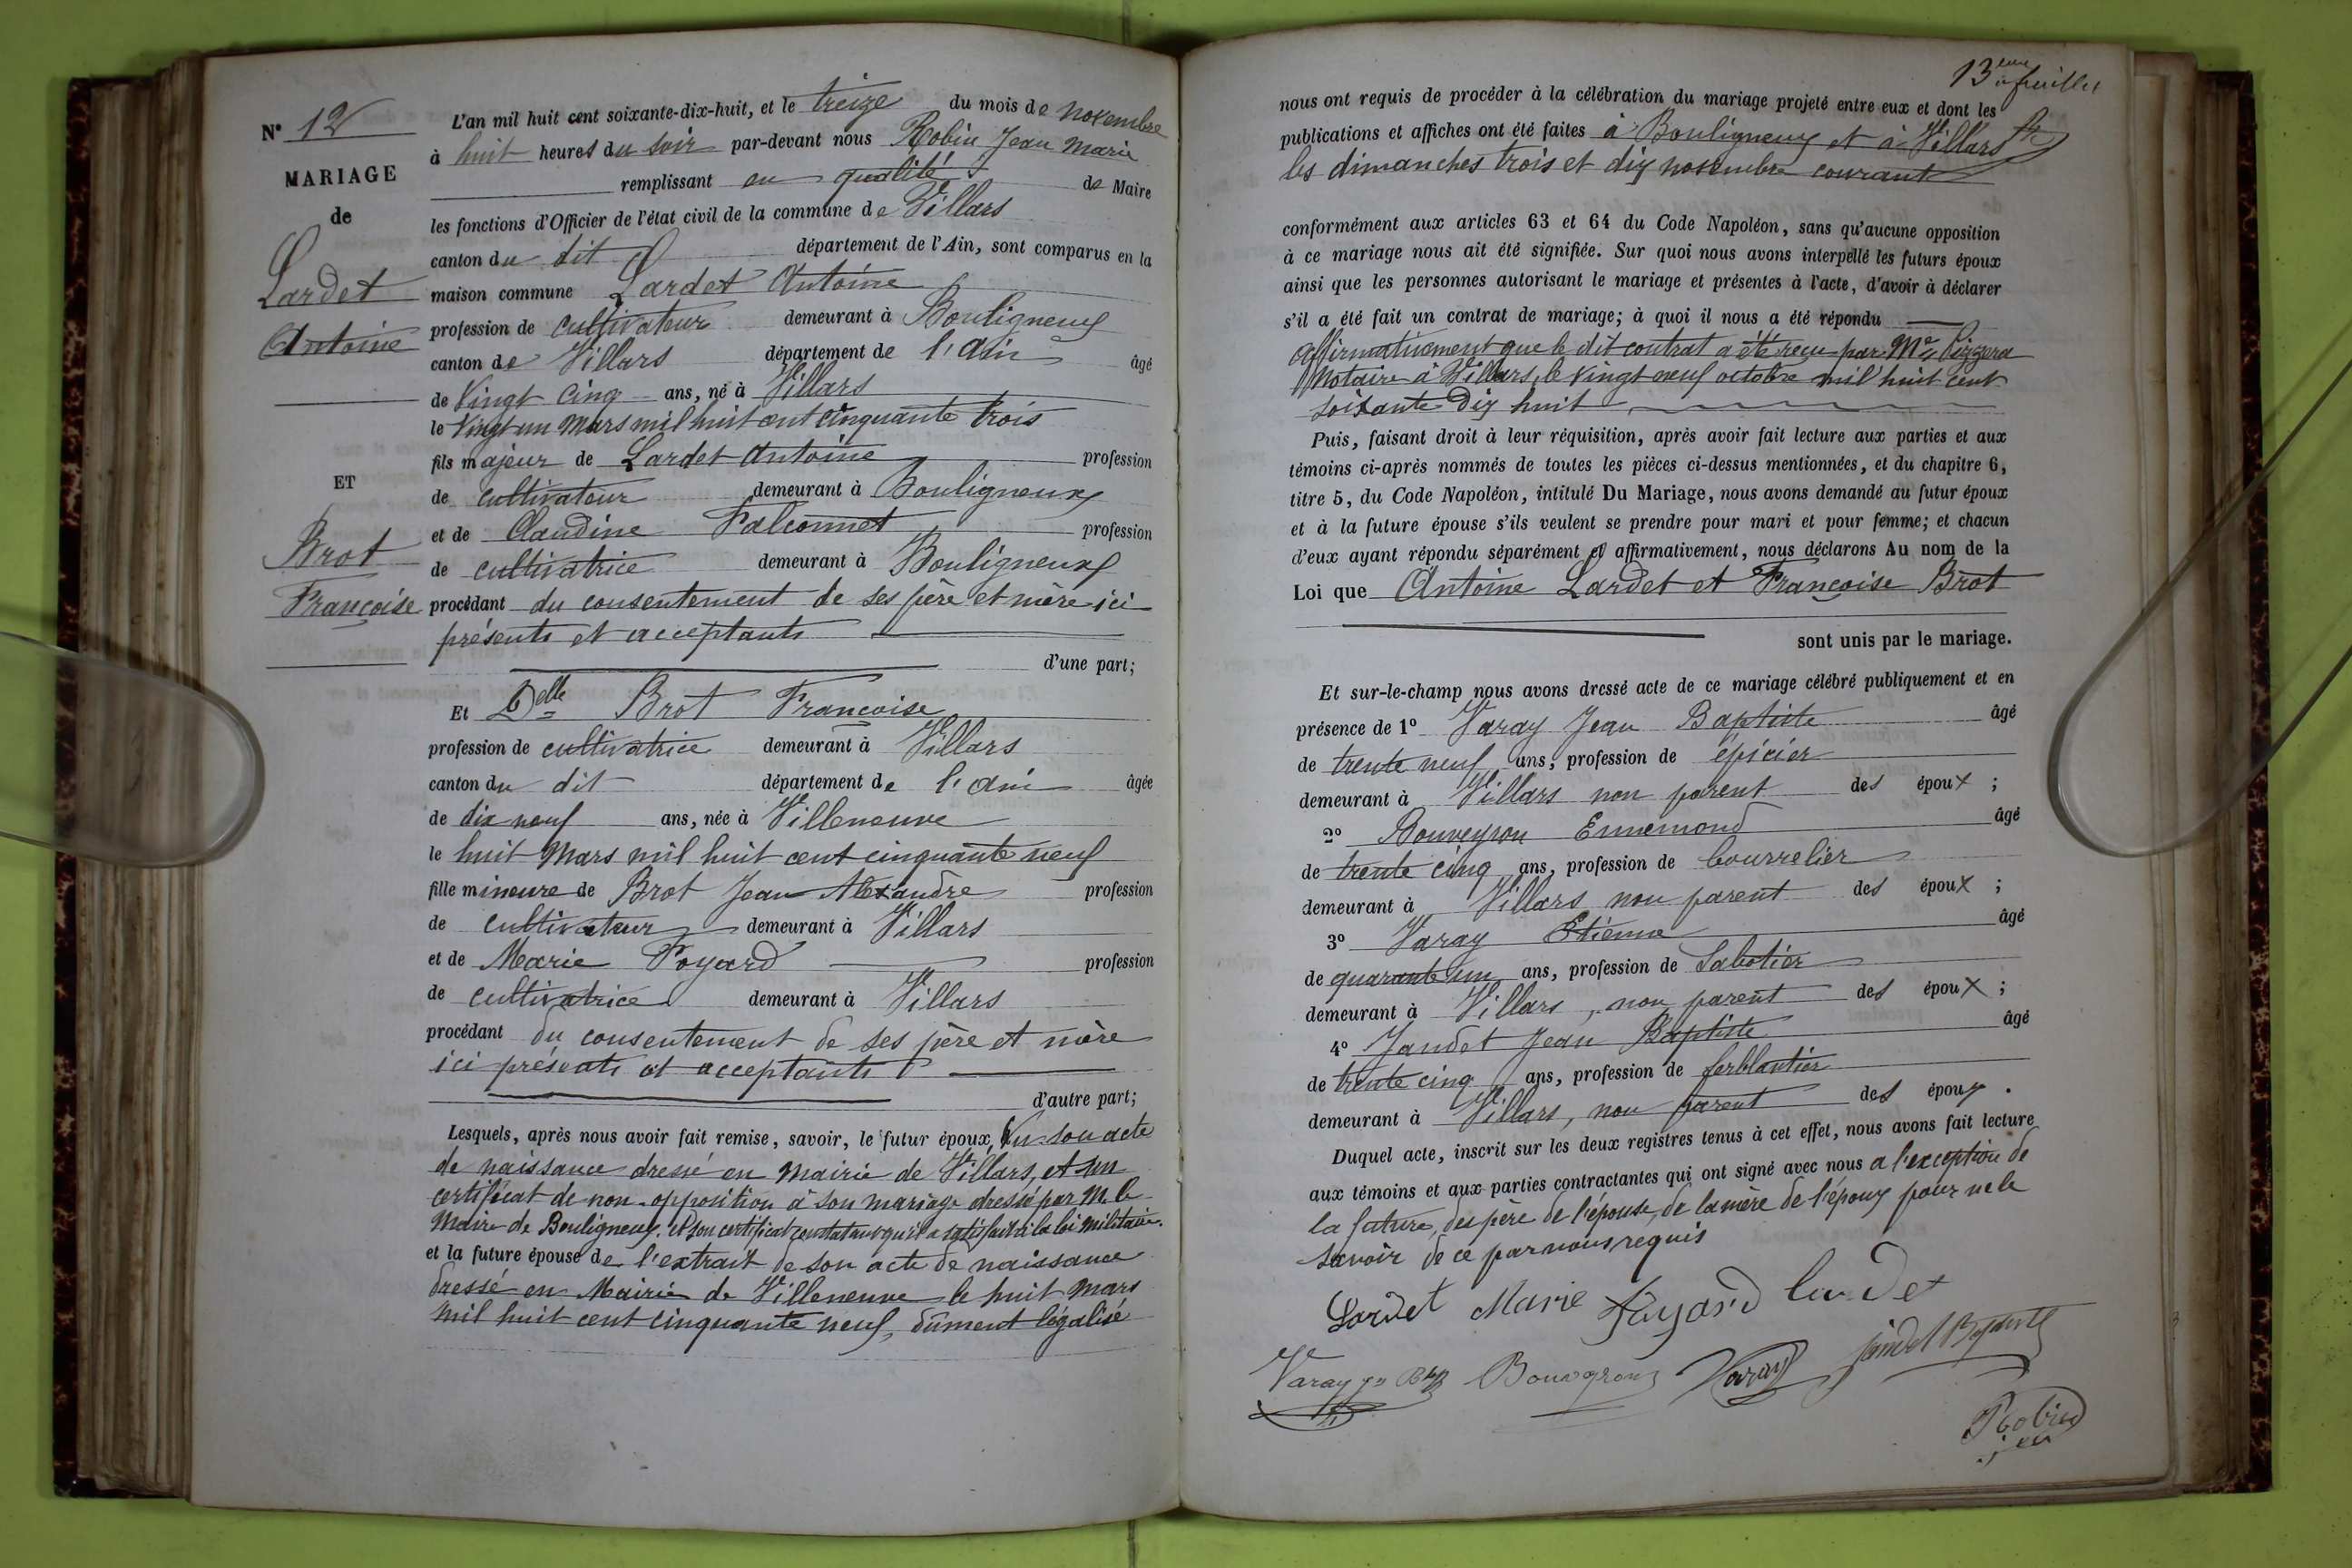 N° 12
MARIAGE
de
Lardet
Antoine
ET
Brot
Françoise
L'an mil huit cent soixante-dix-huit, et le treize du mois de novembre
à huit heures du soir par-devant nous Robin Jean Marie
remplissant en qualité de Maire
les fonctions d'Officier de l'état civil de la commune de Villars
canton du dit département de l'Ain, sont comparus en la
maison commune Lardet Antoine
profession de cultivateur demeurant à Bouligneux
canton de Villars département de l'Ain âgé
de Vingt cinq ans, né à Villars
le Vingt un Mars mil huit cent cinquante trois
fils majeur de Lardet Antoine profession
de cultivateur demeurant à Bouligneux
et de Claudine Falconnet profession
de cultivatrice demeurant à Bouligneux
procédant du consentement de ses père et mère ici
présents et acceptants
d'une part;
Et Delle Brot Françoise
profession de cultivatrice demeurant à Villars
canton du dit département de l'Ain âgée
de dix neuf ans, née à Villeneuve
le huit Mars mil huit cent cinquante neuf
fille mineure de Brot Jean Alexandre profession
de cultivateur demeurant à Villars
et de Marie Foyard profession
de cultivatrice demeurant à Villars
procédant du consentement de ses père et mère
ici présents et acceptants
d'autre part;
Lesquels, après nous avoir fait remise, savoir, le futur époux, Vu son acte
de naissance dressé en Mairie de Villars, et un
certificat de non-opposition à son mariage dressé par M. le
Maire de Bouligneux, et son certificat constatant qu'il a satisfait à la loi militaire.
et la future épouse de l'extrait de son acte de naissance
dressé en Mairie de Villeneuve le huit Mars
mil huit cent cinquante neuf, dûment légalisé
13eme feuillet
nous ont requis de procéder à la célébration du mariage projeté entre eux et dont les
publications et affiches ont été faites à Bouligneux et à Villars
les dimanches trois et dix novembre courant
conformément aux articles 63 et 64 du Code Napoléon, sans qu'aucune opposition
à ce mariage nous ait été signifiée. Sur quoi nous avons interpellé les futurs époux
ainsi que les personnes autorisant le mariage et présentes à l'acte, d'avoir à déclarer
s'il a été fait un contrat de mariage; à quoi il nous a été répondu
affirmativement que le dit contrat a été reçu par Me
Notaire à Villars, le vingt neuf octobre mil huit cent
soixante dix huit
Puis, faisant droit à leur réquisition, après avoir fait lecture aux parties et aux
témoins ci-après nommés de toutes les pièces ci-dessus mentionnées, et du chapitre 6,
titre 5, du Code Napoléon, intitulé Du Mariage, nous avons demandé au futur époux
et à la future épouse s'ils veulent se prendre pour mari et pour femme; et chacun
d'eux ayant répondu séparément et affirmativement, nous déclarons Au nom de la
Loi que Antoine Lardet et Françoise Brot
sont unis par le mariage.
Et sur-le-champ nous avons dressé acte de ce mariage célébré publiquement et en
présence de 1° Varay Jean Baptiste âgé
de trente neuf ans, profession de épicier
demeurant à Villars non parent des époux ;
2° Bouveyron Ennemond âgé
de trente cinq ans, profession de bourrelier
demeurant à Villars non parent des époux ;
3° Varay Etienne âgé
de quarante un ans, profession de Sabotier
demeurant à Villars, non parent des époux ;
4° Jandet Jean Baptiste âgé
de trente cinq ans, profession de ferblantier
demeurant à Villars, non parent des époux .
Duquel acte, inscrit sur les deux registres tenus à cet effet, nous avons fait lecture
aux témoins et aux parties contractantes qui ont signé avec nous a l'exception de
la future, des père de l'épouse, de la mère de l'époux pour ne le
savoir de ce par nous requis
Lardet Marie Fayard Lardet
Varay Jn Bte Bouveyron Varay Jandet Baptiste
Robin